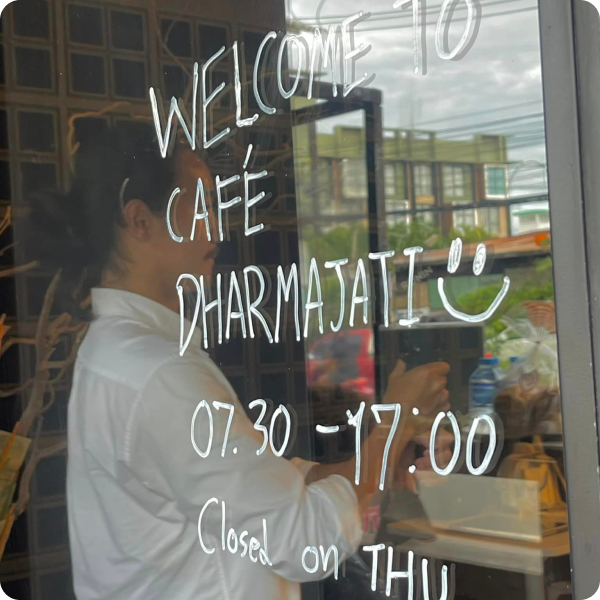 WELCOME TO
CAFÉ
DHARMAJATI
07.30 - 17:00
Closed on THU